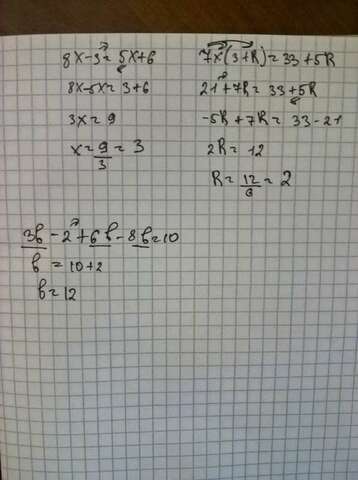 8x-3=5x+6
8x-5x=3+6
3x=9
x=9/3=3
7x(3+R)=33+5R
21+7R=33+5R
-5R+7R=33-21
2R=12
R=12/6=2
3b-2+6b-8b=10
b=10+2
b=12